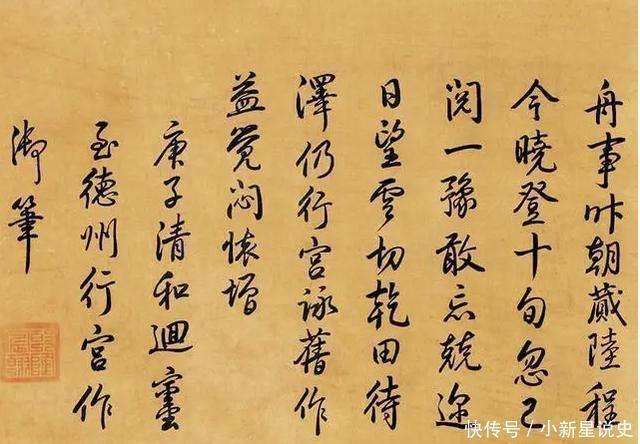 舟事昨朝蕆陸程
今曉登十旬忽已
閱一豫敢忘兢迩
日望雲切乾田待
澤仍行宮詠舊作
益覺悶懷增
庚子清和迴鑾
至德州行宮作
御筆
快传号/小新星说史